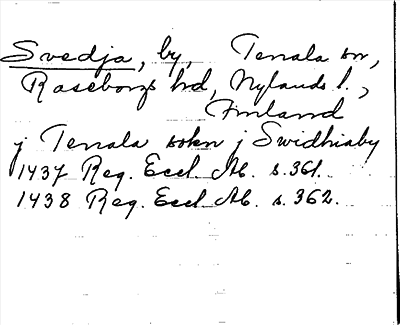 Svedja, by, Tenala sn,
Raseborgs hd, Nylands l.,
Finland
j Tenala sokn j Swidhiaby
1437 Reg. Eccl. Ab. s. 361.
1438 Reg. Eccl. Ab. s. 362.